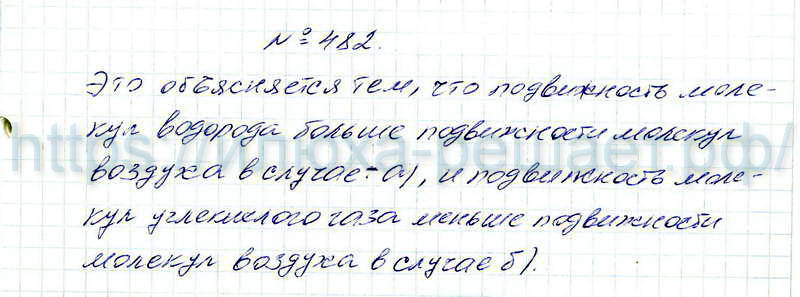 № 482.
Это объясняется тем, что подвижность моле-
кул водорода больше подвижности молекул
воздуха в случае а), и подвижность моле-
кул углекислого газа меньше подвижности
молекул воздуха в случае б).